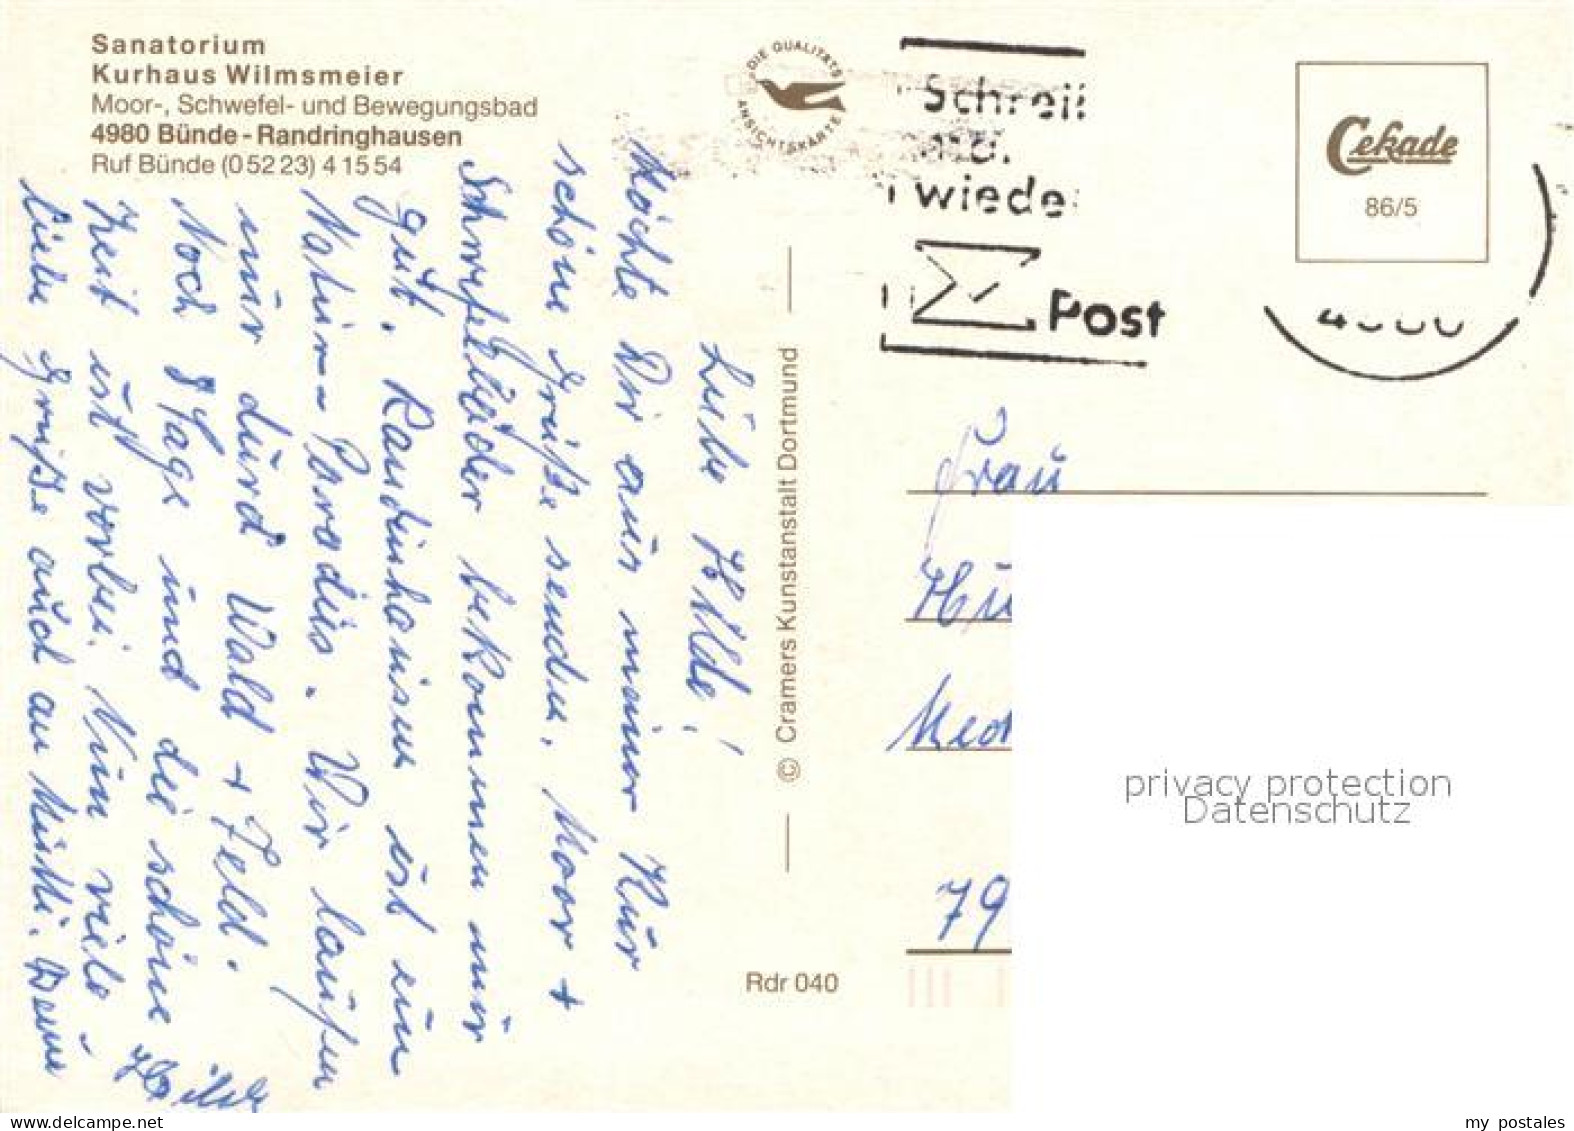 Sanatorium
Kurhaus Wilmsmeier
Moor-, Schwefel- und Bewegungsbad
4980 Bünde - Randringhausen
Ruf Bünde (0 52 23) 4 15 54
DIE QUALITÄTS
ANSICHTSKARTE
Schrei
wiede
Post
Cekade
86/5
Liebe Hilde!
Möchte Dir aus meiner Kur
schöne Grüße senden. Moor +
Schwefelbäder bekommen mir
gut. Randinhausen ist ein
Natur- Paradies. Wir laufen
nur durch Wald + Feld.
Noch 8 Tage und die schöne
Zeit ist vorbei. Nun viele
liebe Grüße auch an Mutti. Deine
Hilde
© Cramers Kunstanstalt Dortmund
Rdr 040
Frau
79
privacy protection
Datenschutz
my postales